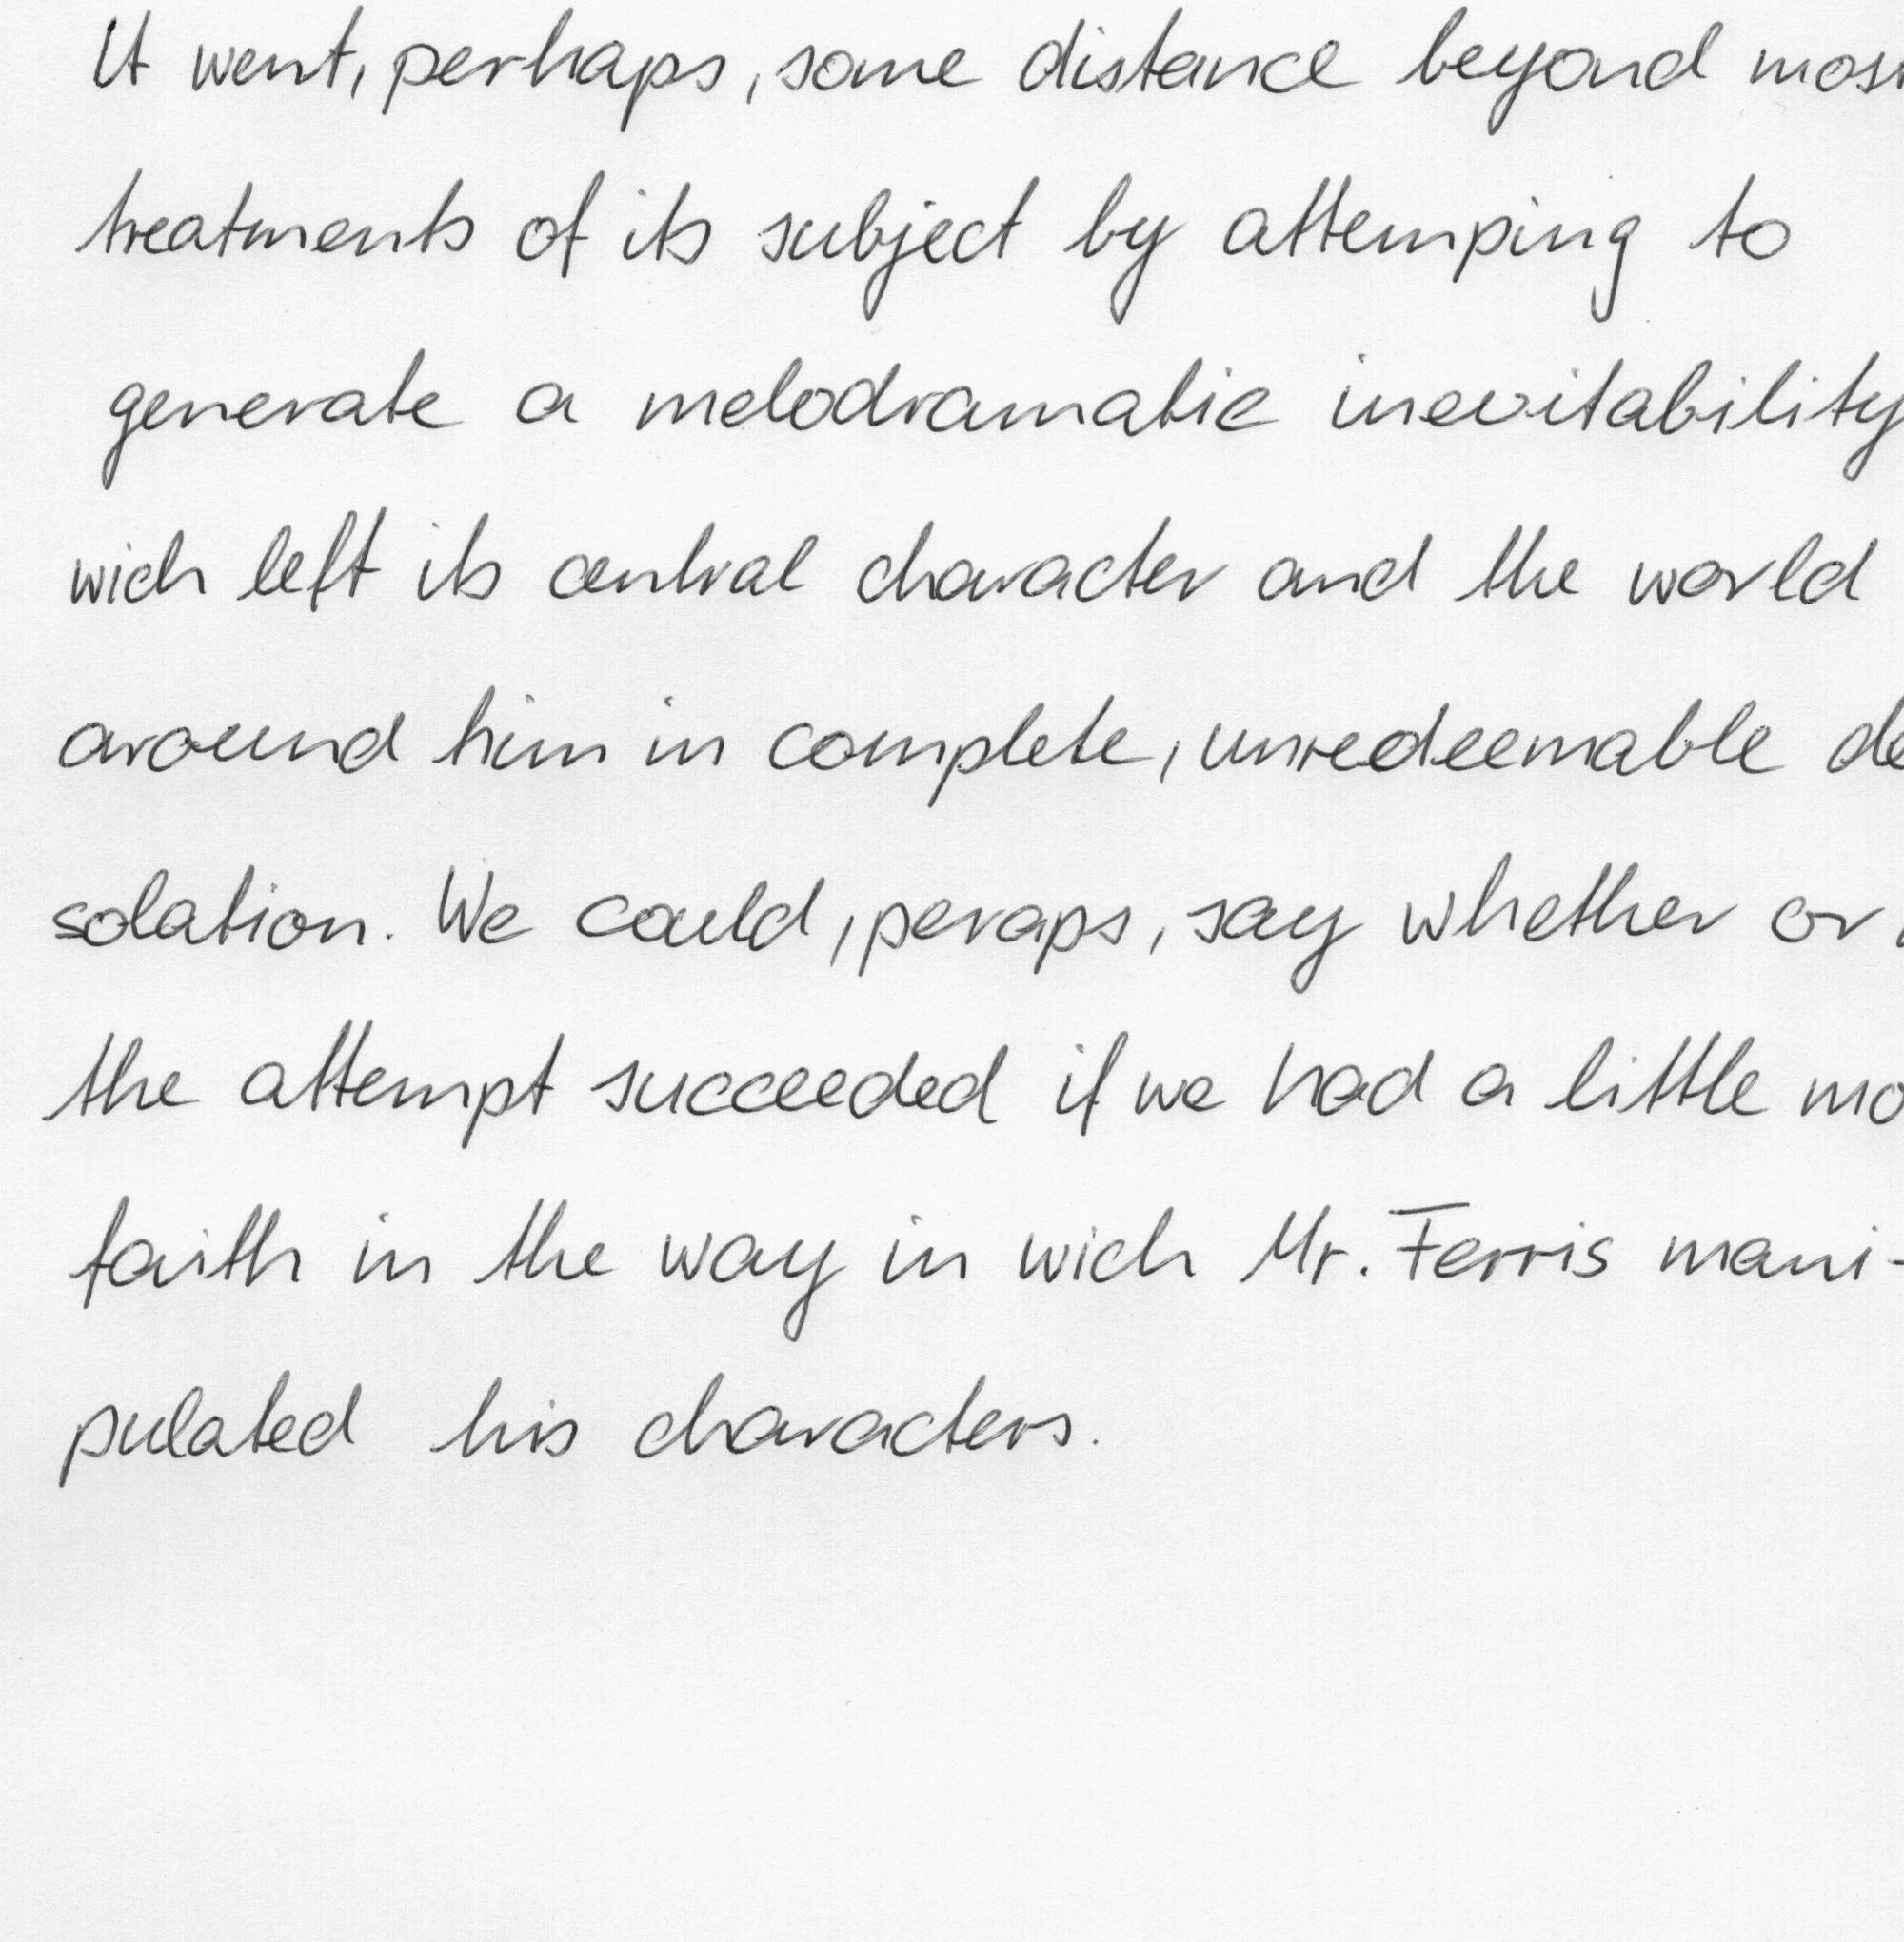 It went, perhaps, some distance beyond most
treatments of its subject by attemping to
generate a melodramatic inevitability
wich left its central character and the world
around him in complete, unredeemable de
solation. We could, peraps, say whether or
the attempt succeeded if we had a little mo
faith in the way in wich Mr. Ferris mani-
pulated his characters.